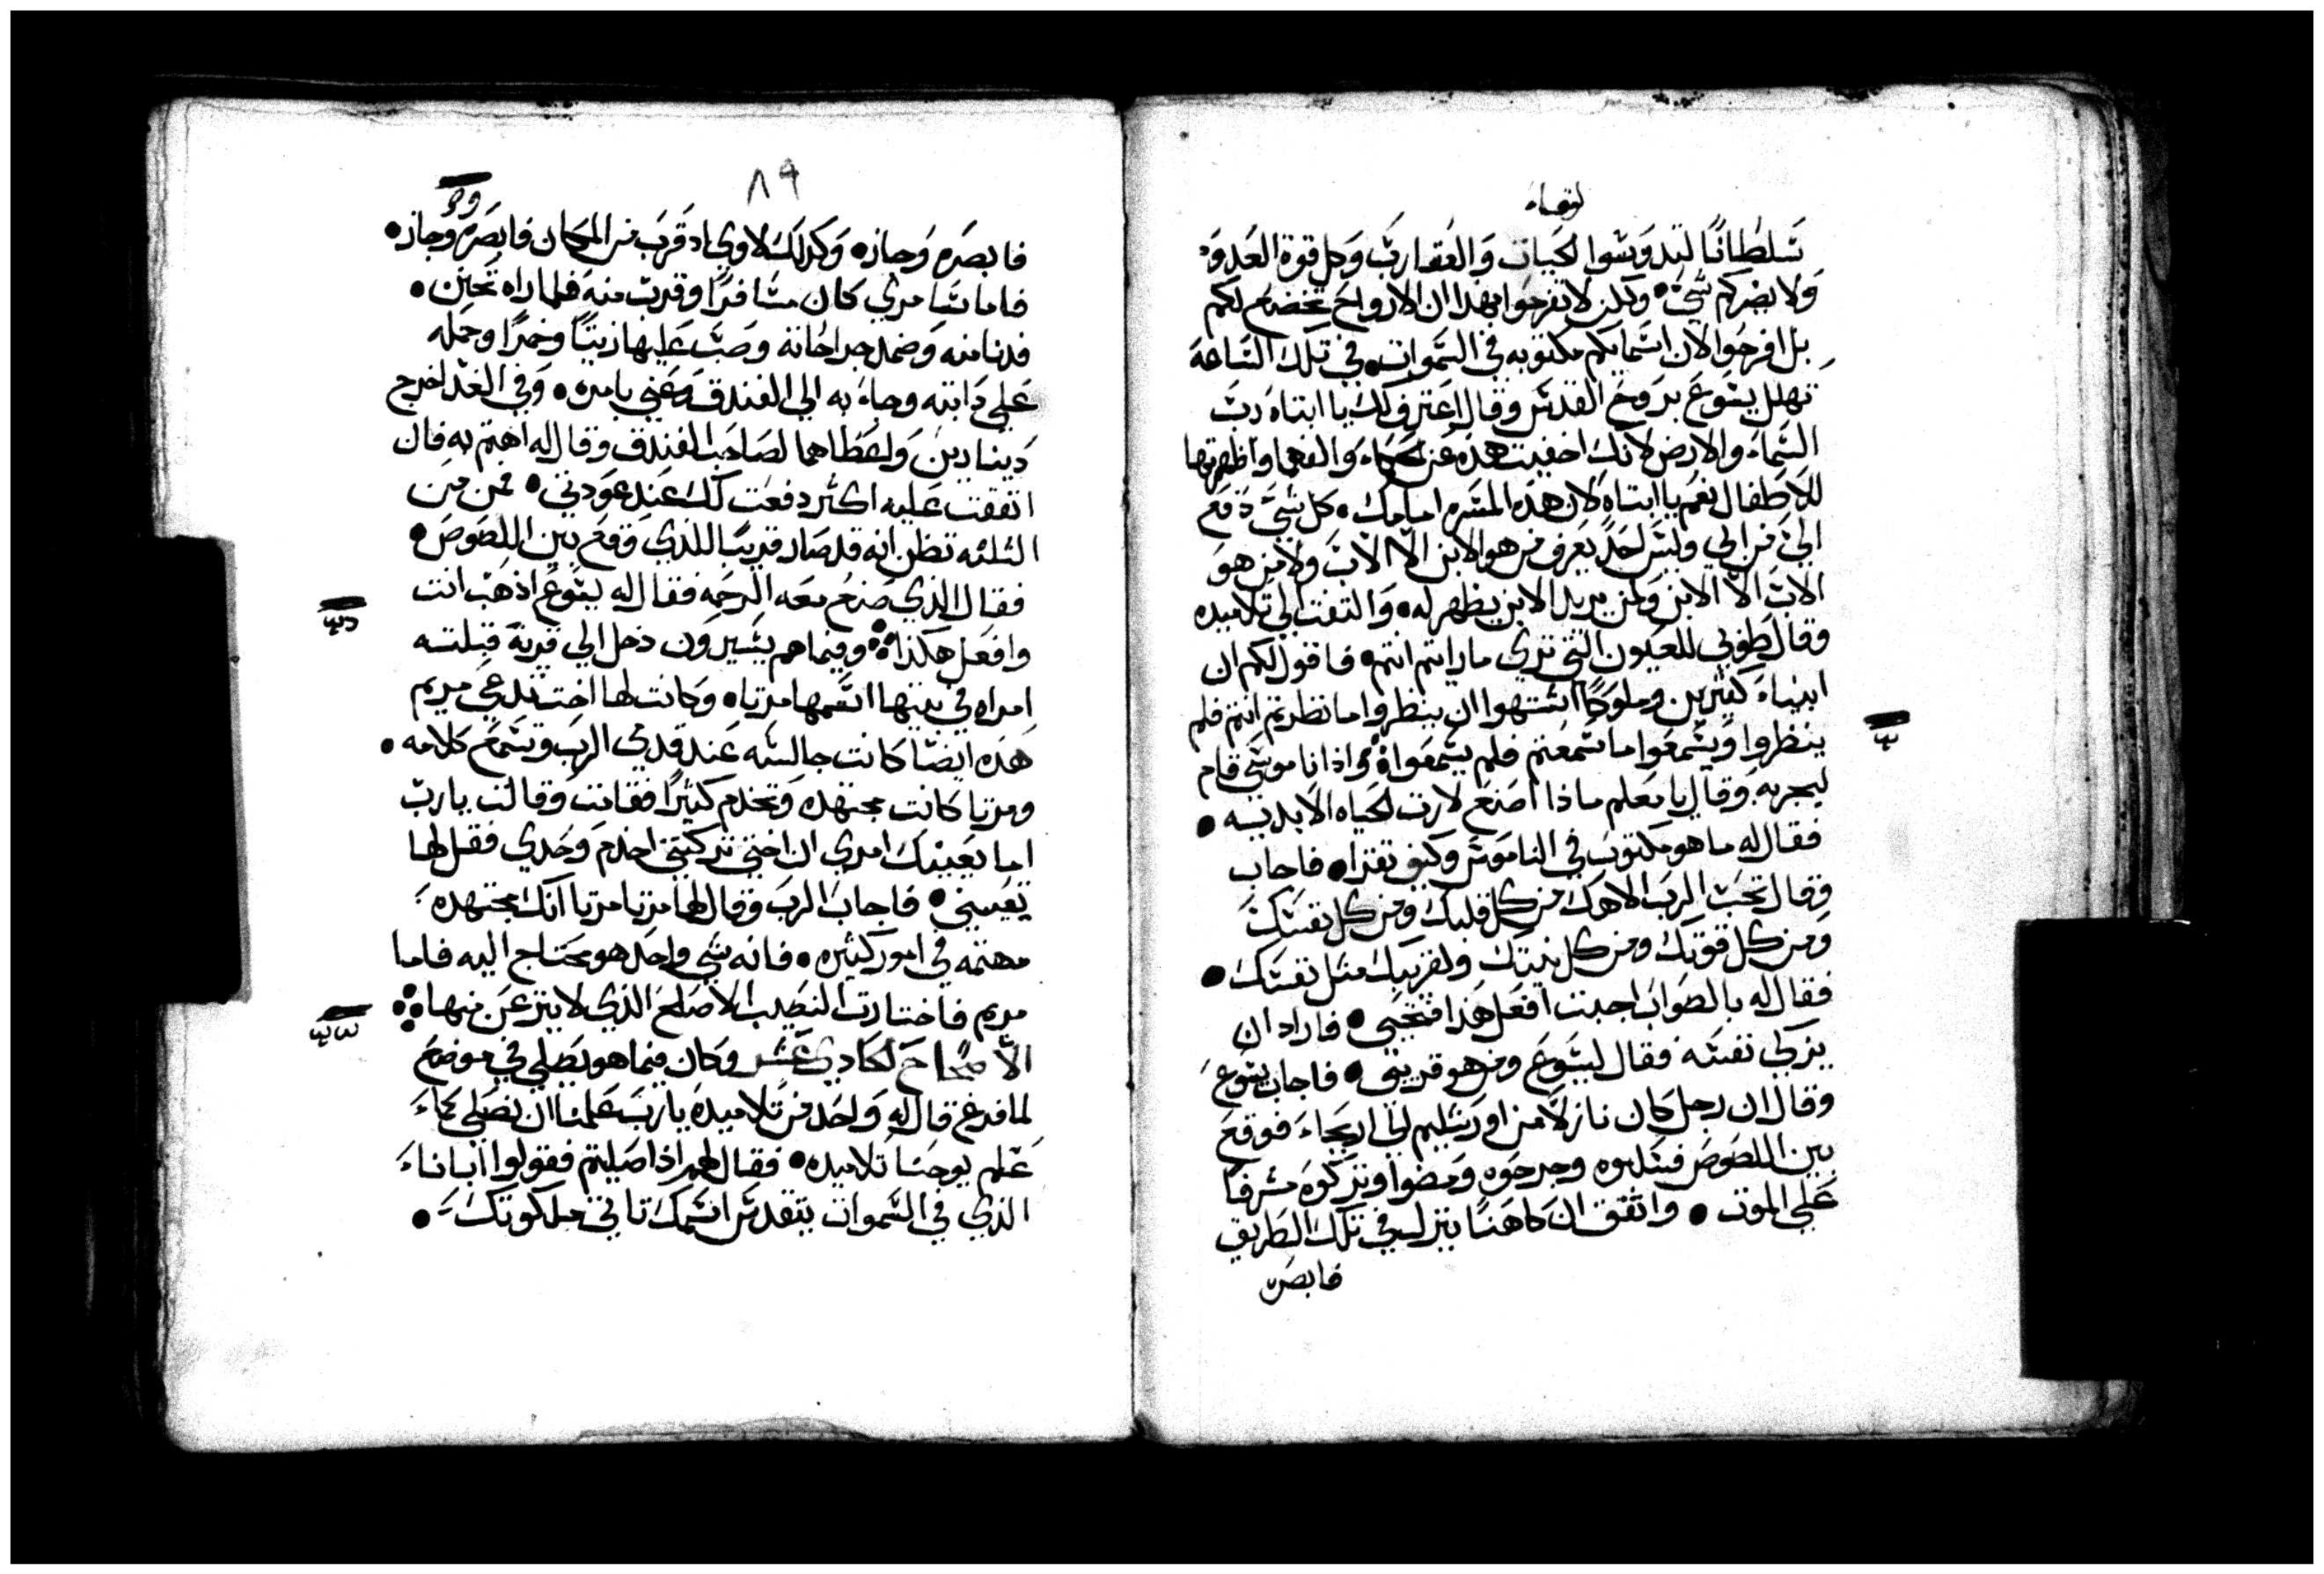 لوقاء
سَلطانًا لتدوسُوا الحَيات وَالعُقارَب وَكل قوة العَدوَ
وَلا يضركم شَيْ • وَلكن لا تفرحُوا بهدا ان الارواح تخضع لكم
بَل افرحُوا لان اسَمايكم مكتوبه في السَموات • في تلك السَاعة
تهلل يسُوعَ بروح القدسَ وقال اعَترف لك يا ابتاه ربَ
السَماء والارض لانك اخفيت هذه عَن الحكماء وَالفهما واظهرتها
للاطفال نعَم يا ابتاه لان هذه المسَره امامك • كل شَيْ دَفع
الي من ابي وليسَ احَد يَعرف من هو الابن الا الابَ ولا من هوَ
الابَ الا الابن وَلمن يريد الابن يظهر له • وَالتفت الي تلاميده
وقال طوبي للعَيون التي تري ما رايتم انتم • فاقول لكم ان
انبياء كثيرين وملوكًا اشتهوا ان ينظروا ما نظرتم انتم فلم
ينظروا وَيسَمعَوا ما سَمعَتم فلم يسَمعَوا • واذا ناموسَي قام
ليجربه وَقال يا معَلم ماذا اصنعَ لارت الحَياه الابديه •
فقال له ما هو مكتوبَ في الناموسَ وكيف تقرا • فاجاب
وَقال تحَبَ الربَ الاهك من كل قلبك ومن كل نفسَك
وَمن كل قوتك ومن كل نيتك ولقريبك متل نفسَك •
فقال له بالصوابَ اجبت افعَل هَذا فتحَيي • فاراد ان
يزكي نفسَه فقال ليسَوعَ ومن هو قريبي • فاجاب يسَوعَ
وقال ان رجل كان نازلاً من اورشَليم الي اريحاء فوقعَ
بين اللصَوصَ فسَلبوه وجرحَوه وَمضوا وتركوه مشَرفا
عَلي الموت • واتفق ان كاهنًا ينزل في تلك الطريق
فابصره
٨٩
فابصَره وَجاز • وَكدلك لاوي اد قَربَ من المكان فابصَره وجاز •
فاما سَامري كان مسَافرًا وقربَ منه فلما راه تحَنن •
فدنا منه وَضمد جراحَاته وصَبَ عَليها زيتًا وخمرًا وحمله
عَلي دَابته وجاء به الي الفندق وعَني بامره • وَفي الغد اخرج
دَينارين وَاعَطاهما لصَاحَب الفندق وقال له اهتم به فان
انفقت عَليه اكتر دفعَت لك عَند عَودتي • فمن من
التلتة تظن انه قد صَار قريبًا للدي وَقع بين اللصَوصَ •
فقال الذي صَنعَ معَه الرحَمه فقال له يسَوعَ اذهبَ انت
وافعَل هكذا • وفيما هم يسَيرون دخل الي قرية قبلته
امراه في بيتها اسَمها مرتا • وَكانت لها اخت تدعَي مريم
هَذه ايضَا كانت جالسَه عَند قدمي الربَ وتسَمعَ كلامه •
ومرتا كانت مجتهده وَتخدم كثيرًا فقامت وقالت ياربَ
اما يَعَينك امري ان اختي تركتني اخدم وَحَدي فقل لها
تعَينني • فاجابَ الربَ وَقال لها مرتا مرتا انك مجتهده
مهتمه في امور كثيره • فانه شَي واحَد هو محتاج اليه فاما
مريم فاختارت النصَيب الاصَلحَ الذي لا ينزعَ منها •
الاصحاح الحَادي عَشر وَكان فيما هو يَصَلي في موضع
لما فرغ قال له وَاحَد من تلاميده ياربَ عَلمنا ان نصَلي كماء
عَلم يوحَنا تلاميده • فقال لهم اذا صَليتم فقولوا ابانا
الذي في السَموات يتقدسَ اسَمك تاتي ملكوتك •